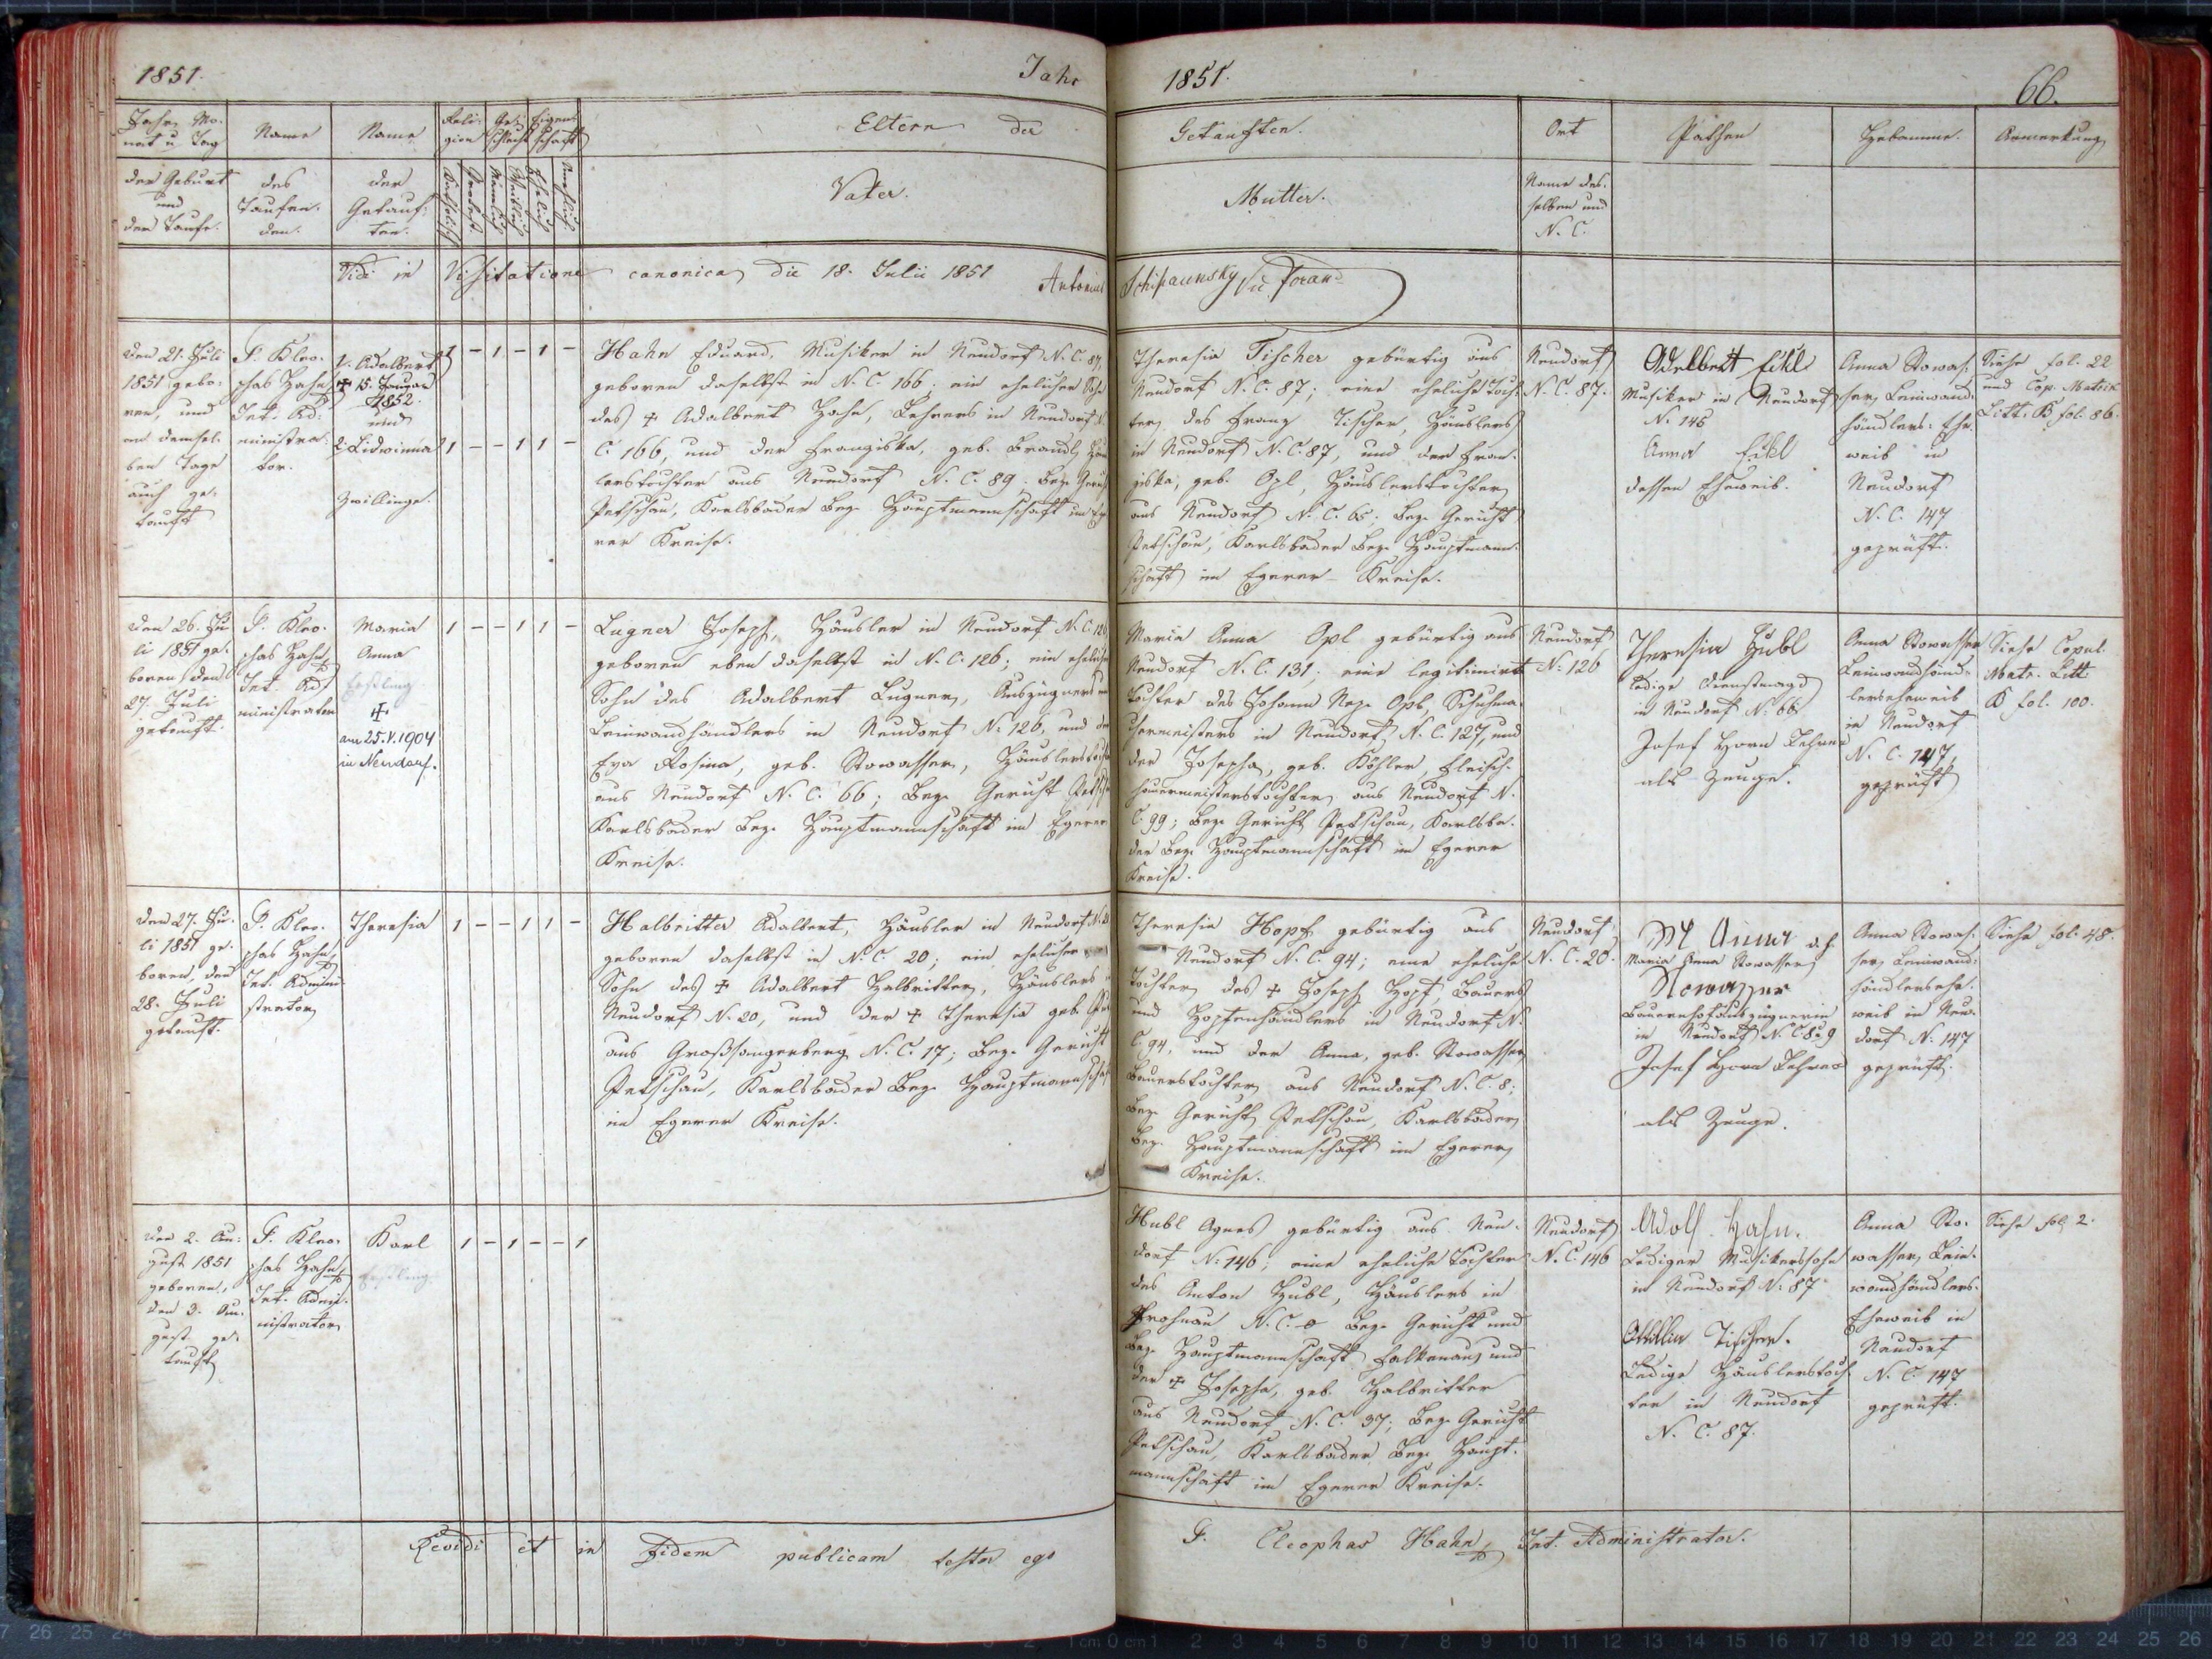 1851.
Jahr
1851.
66.
Jahr, Mo-
nat u Tag
der Geburt
und
der Taufe.
Name
des
Taufen-
den.
Name
der
Getauf-
ten.
Reli-
gion
Ge-
schlecht
Eigen-
schaft
Eltern der
Vater.
Getauften.
Mutter.
Ort
Name des-
selben und
N. C.
Pathen
Hebamme.
Anmerkung
Vidi in Visitatione canonica die 18. Julii 1851 Antonius
Schipaunsky
den 21. Juli
1851 gebo-
ren, und
an demsel-
ben Tage
auch ge-
tauft
P. Kleo-
phas Hahn
Int. Ad-
ministra-
tor.
1. Adalbert
✝ 15. Januar
1852.
und
2. Lidwinna
Zwillinge.
1 - 1 - 1 -
1 - - 1 1 -
Hahn Eduard, Musiker in Neudorf N. C. 87,
geboren daselbst in N. C. 166; ein ehelicher Sohn
des ✝ Adalbert Hahn, Lehrers in Neudorf N.
C. 166, und der Franziska, geb. Brandl, Häus
lerstochter aus Neudorf N. C. 89; Bez. Gericht
Petschau, Karlsbader Bez. Hauptmannschaft im Ege
rer Kreise.
Theresia Tischer gebürtig aus
Neudorf N. C. 87; eine eheliche Toch-
ter des Franz Tischer, Häuslers
in Neudorf N. C. 87, und der Fran-
ziska, geb. Opl, Häuslerstochter
aus Neudorf N. C. 65; Bez. Gericht
Petschau, Karlsbader Bez. Hauptmann-
schaft im Egerer Kreise.
Neudorf
N. C. 87.
Adelbert Eikl
Musiker in Neudorf
N. 146
Anna Eikl
dessen Eheweib.
Anna Stowas-
ser, Leinwand-
händlers Ehe-
weib in
Neudorf
N. C. 147
geprüft.
Siehe fol. 22
und Cop. Matrik
Litt. K fol. 86.
den 26. Ju
li 1851 ge-
boren, den
27. Juli
getauft.
P. Kleo-
phas Hahn
Int. Ad-
ministrator
Maria
Anna
Erstling
✝
am 25. V. 1904
in Neudorf.
1 - - 1 1 -
Lugner Joseph, Häusler in Neudorf N. C. 126,
geboren eben daselbst in N. C. 126; ein ehelicher
Sohn des Adalbert Lugner, Auszügners und
Leinwandhändlers in Neudorf N. 126, und der
Eva Rosina, geb. Stowasser, Häuslerstochter
aus Neudorf N. C. 66; Bez. Gericht Petschau
Karlsbader Bez. Hauptmannschaft im Egerer
Kreise.
Maria Anna Opl gebürtig aus
Neudorf N. C. 131; eine legitimirte
Tochter des Johann Nep. Opl, Schuhma-
chermeisters in Neudorf N. C. 127, und
der Josepha, geb. Köhler, Fleisch-
hauermeisterstochter aus Neudorf N.
C. 99; Bez. Gericht Petschau, Karlsba-
der Bez. Hauptmannschaft im Egerer
Kreise.
Neudorf
N. 126
Theresia Hubl
ledige Dienstmagd
in Neudorf N. 66
Josef Horn Lehrer
als Zeuge.
Anna Stowasser
Leinwandhänd-
lerseheweib
in Neudorf
N. C. 147,
geprüft
Siehe Copul.
Matr. Litt.
K fol. 100.
den 27. Ju-
li 1851 ge-
boren, den
28. Juli
getauft.
P. Kleo-
phas Hahn,
Int. Admini-
strator
Theresia
1 - - 1 1 -
Halbritter Adalbert, Häusler in Neudorf N. 20
geboren daselbst in N. C. 20; ein ehelicher
Sohn des ✝ Adalbert Halbritter, Häuslers in
Neudorf N. 20, und der ✝ Theresia geb.
aus Großsangerberg N. C. 17; Bez. Gericht
Petschau, Karlsbader Bez. Hauptmannschaft
im Egerer Kreise.
Theresia Hopf gebürtig aus
Neudorf N. C. 94; eine eheliche
Tochter des ✝ Joseph Hopf, Bauers
und Hopfenhändlers in Neudorf N.
C. 94, und der Anna, geb. Stowasser
Bauerstochter aus Neudorf N. C. 8;
Bez. Gericht Petschau, Karlsbader
Bez. Hauptmannschaft im Egerer
Kreise.
Neudorf
N. C. 20.
M Anna d. h.
Maria Anna Stowasser
Stowasser
Bauernhofauszügnerin
in Neudorf N. C. 8
Josef Horn Lehrer
als Zeuge.
Anna Stowas-
ser, Leinwand-
händlersehe-
weib in Neu-
dorf N. 147
geprüft.
Siehe fol. 48.
den 2. Au-
gust 1851
geboren,
den 3. Au-
gust ge-
tauft
P. Kleo-
phas Hahn,
Int. Admi-
nistrator
Karl
Erstling
1 - 1 - - 1
Hubl Agnes gebürtig aus Neu-
dorf N. 146; eine eheliche Tochter
des Anton Hubl, Häuslers in
Frohnau N. C. Bez. Gericht und
Bez. Hauptmannschaft Falkenau, und
der ✝ Josepha, geb. Halbritter
aus Neudorf N. C. 37; Bez. Gericht
Petschau, Karlsbader Bez. Haupt-
mannschaft im Egerer Kreise.
Neudorf
N. C. 146
Adolf Hahn.
Lediger Musikerssohn
in Neudorf N. 87
Ottilia Tischer.
Ledige Häuslerstoch-
ter in Neudorf
N. C. 87.
Anna Sto-
wasser, Lein-
wandhändlers-
Eheweib in
Neudorf
N. C. 147
geprüft.
Siehe fol. 2.
Revidi et in Fidem publicam testor ego
P. Cleophas Hahn, Int. Administrator.